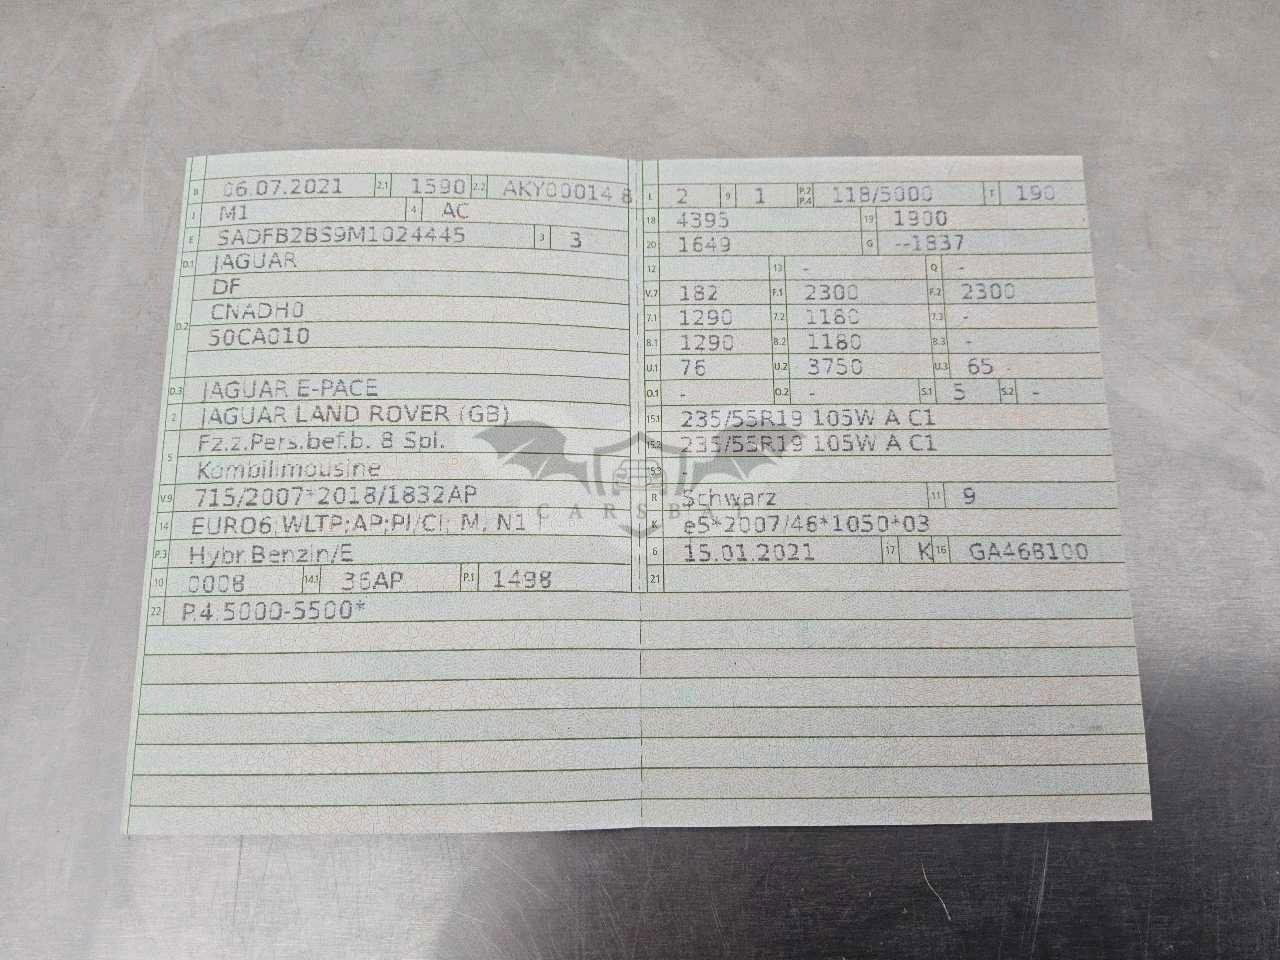 B 06.07.2021 2.1 1590 2.2 AKY00014 8
J M1 4 AC
E SADFB2BS9M1024445 3 3
D.1 JAGUAR
D.2 DF
CNADH0
50CA010
D.3 JAGUAR E-PACE
2 JAGUAR LAND ROVER (GB)
5 Fz.z.Pers.bef.b. 8 Spl.
Kombilimousine
V.9 715/2007*2018/1832AP
14 EURO6;WLTP;AP;PI/CI; M, N1 I
P.3 Hybr.Benzin/E
10 0008 14.1 36AP P.1 1498
22 P.4:5000-5500*
L 2 9 1 P.2 P.4 118/5000 T 190
18 4395 19 1900
20 1649 G --1837
12 13 - Q -
V.7 182 F.1 2300 F.2 2300
7.1 1290 7.2 1180 7.3 -
8.1 1290 8.2 1180 8.3 -
U.1 76 U.2 3750 U.3 65
O.1 - O.2 - S.1 5 S.2 -
15.1 235/55R19 105W A C1
15.2 235/55R19 105W A C1
15.3 -
R Schwarz 11 9
CARSBAT
K e5*2007/46*1050*03
6 15.01.2021 17 K 16 GA468100
21